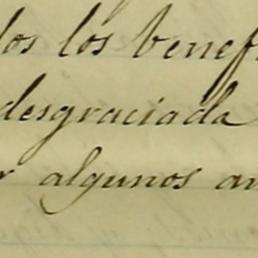 dos los benef
desgraciada
r algunos an